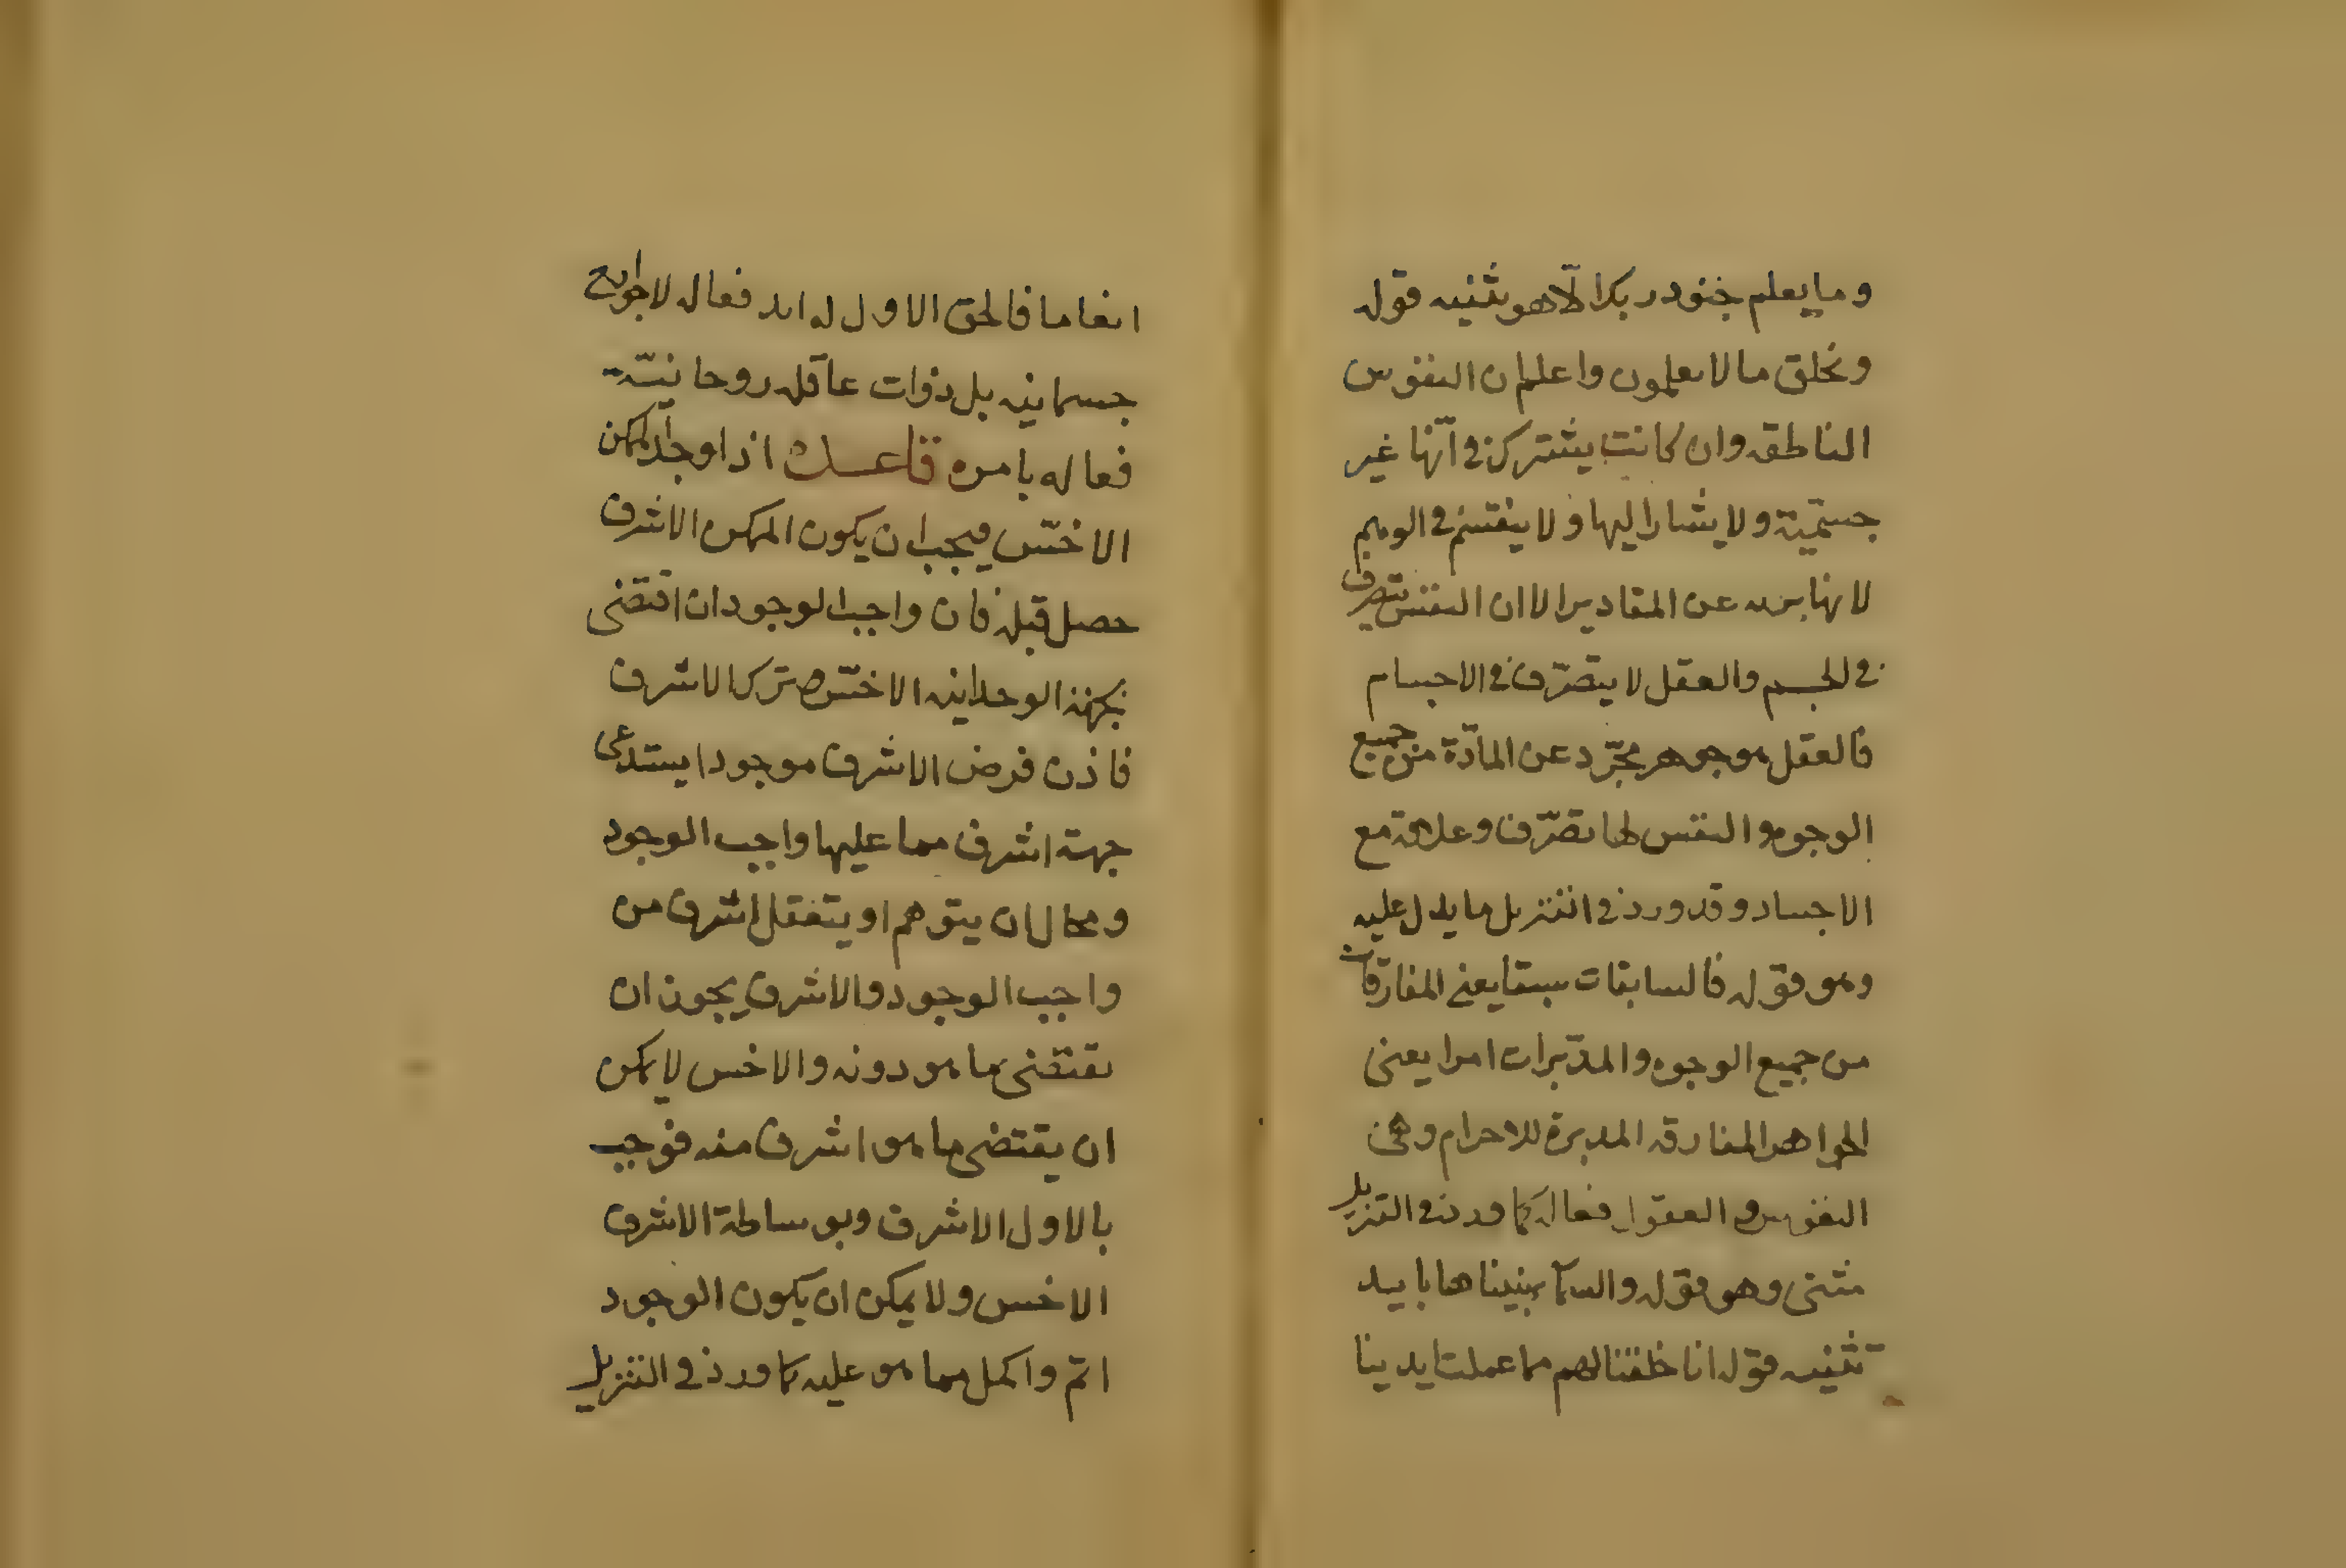 وما يعلم جنود ربك الّا هو مثنيه قوله
ونخلق ما لا تعلمون واعلم ان النفوس
الناطقه وان كانت يشترك في انّها غير
جسميّة ولا يشار اليها ولا ينقسم في الوهم
لانها بريه عن المقادير الا ان النفس يتصرف
في الجسم والعقل لا يتصرّف في الاجسام
فالعقل هو جوهر مجرّد عن المادّة من جميع
الوجوه والنفس لها تصرّف وعلاقة مع
الاجساد وقد ورد في التنزيل ما يدل عليه
وهو قوله فالسابقات سبقا يعني المفارقات
من جميع الوجوه والمدبّرات امرا يعني
الجواهر المفارقه المدبرة للاجرام وهي
النفوس والعقول فعاله كما ورد في التنزيل
مثنى وهو قوله والسمآ بنيناها بايد
تثنيه قوله انا خلقنا لهم مما عملت ايدينا
انعاما فالحق الاول له ايد فعاله لا جوارح
جسمانيه بل ذوات عاقله روحانيّة
فعاله بامره قاعدة اذا وجد الممكن
الاخسّ فيجب ان يكون الممكن الاشرف
حصل قبله فان واجب الوجود ان اقتضى
بجهته الوحدانيه الاخسّ ترك الاشرف
فاذن فرض الاشرف موجودا يستدعى
جهة اشرف مما عليها واجب الوجود
ومحال ان يتوهم او يتعقل اشرف من
واجب الوجود والاشرف يجوز ان
يقتضى ما هو دونه والاخس لا يمكن
ان يقتضى ما هو اشرف منه فوجب
بالاول الاشرف وبوساطة الاشرف
الاخس ولا يمكن ان يكون الوجود
اتم واكمل مما هو عليه كما ورد في التنزيل